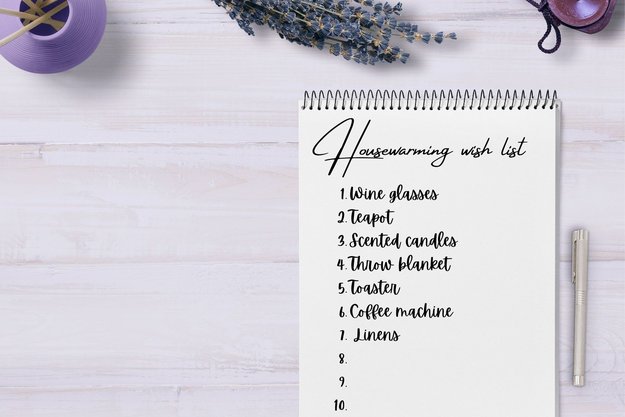 Housewarming wish list
1. Wine glasses
2. Teapot
3. Scented candles
4. Throw blanket
5. Toaster
6. Coffee machine
7. Linens
8.
9.
10.